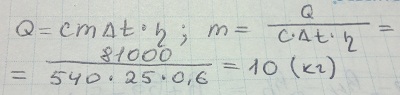 Q = cmΔt·η; m = Q / (c·Δt·η) =
= 81000 / (540·25·0,6) = 10 (кг)